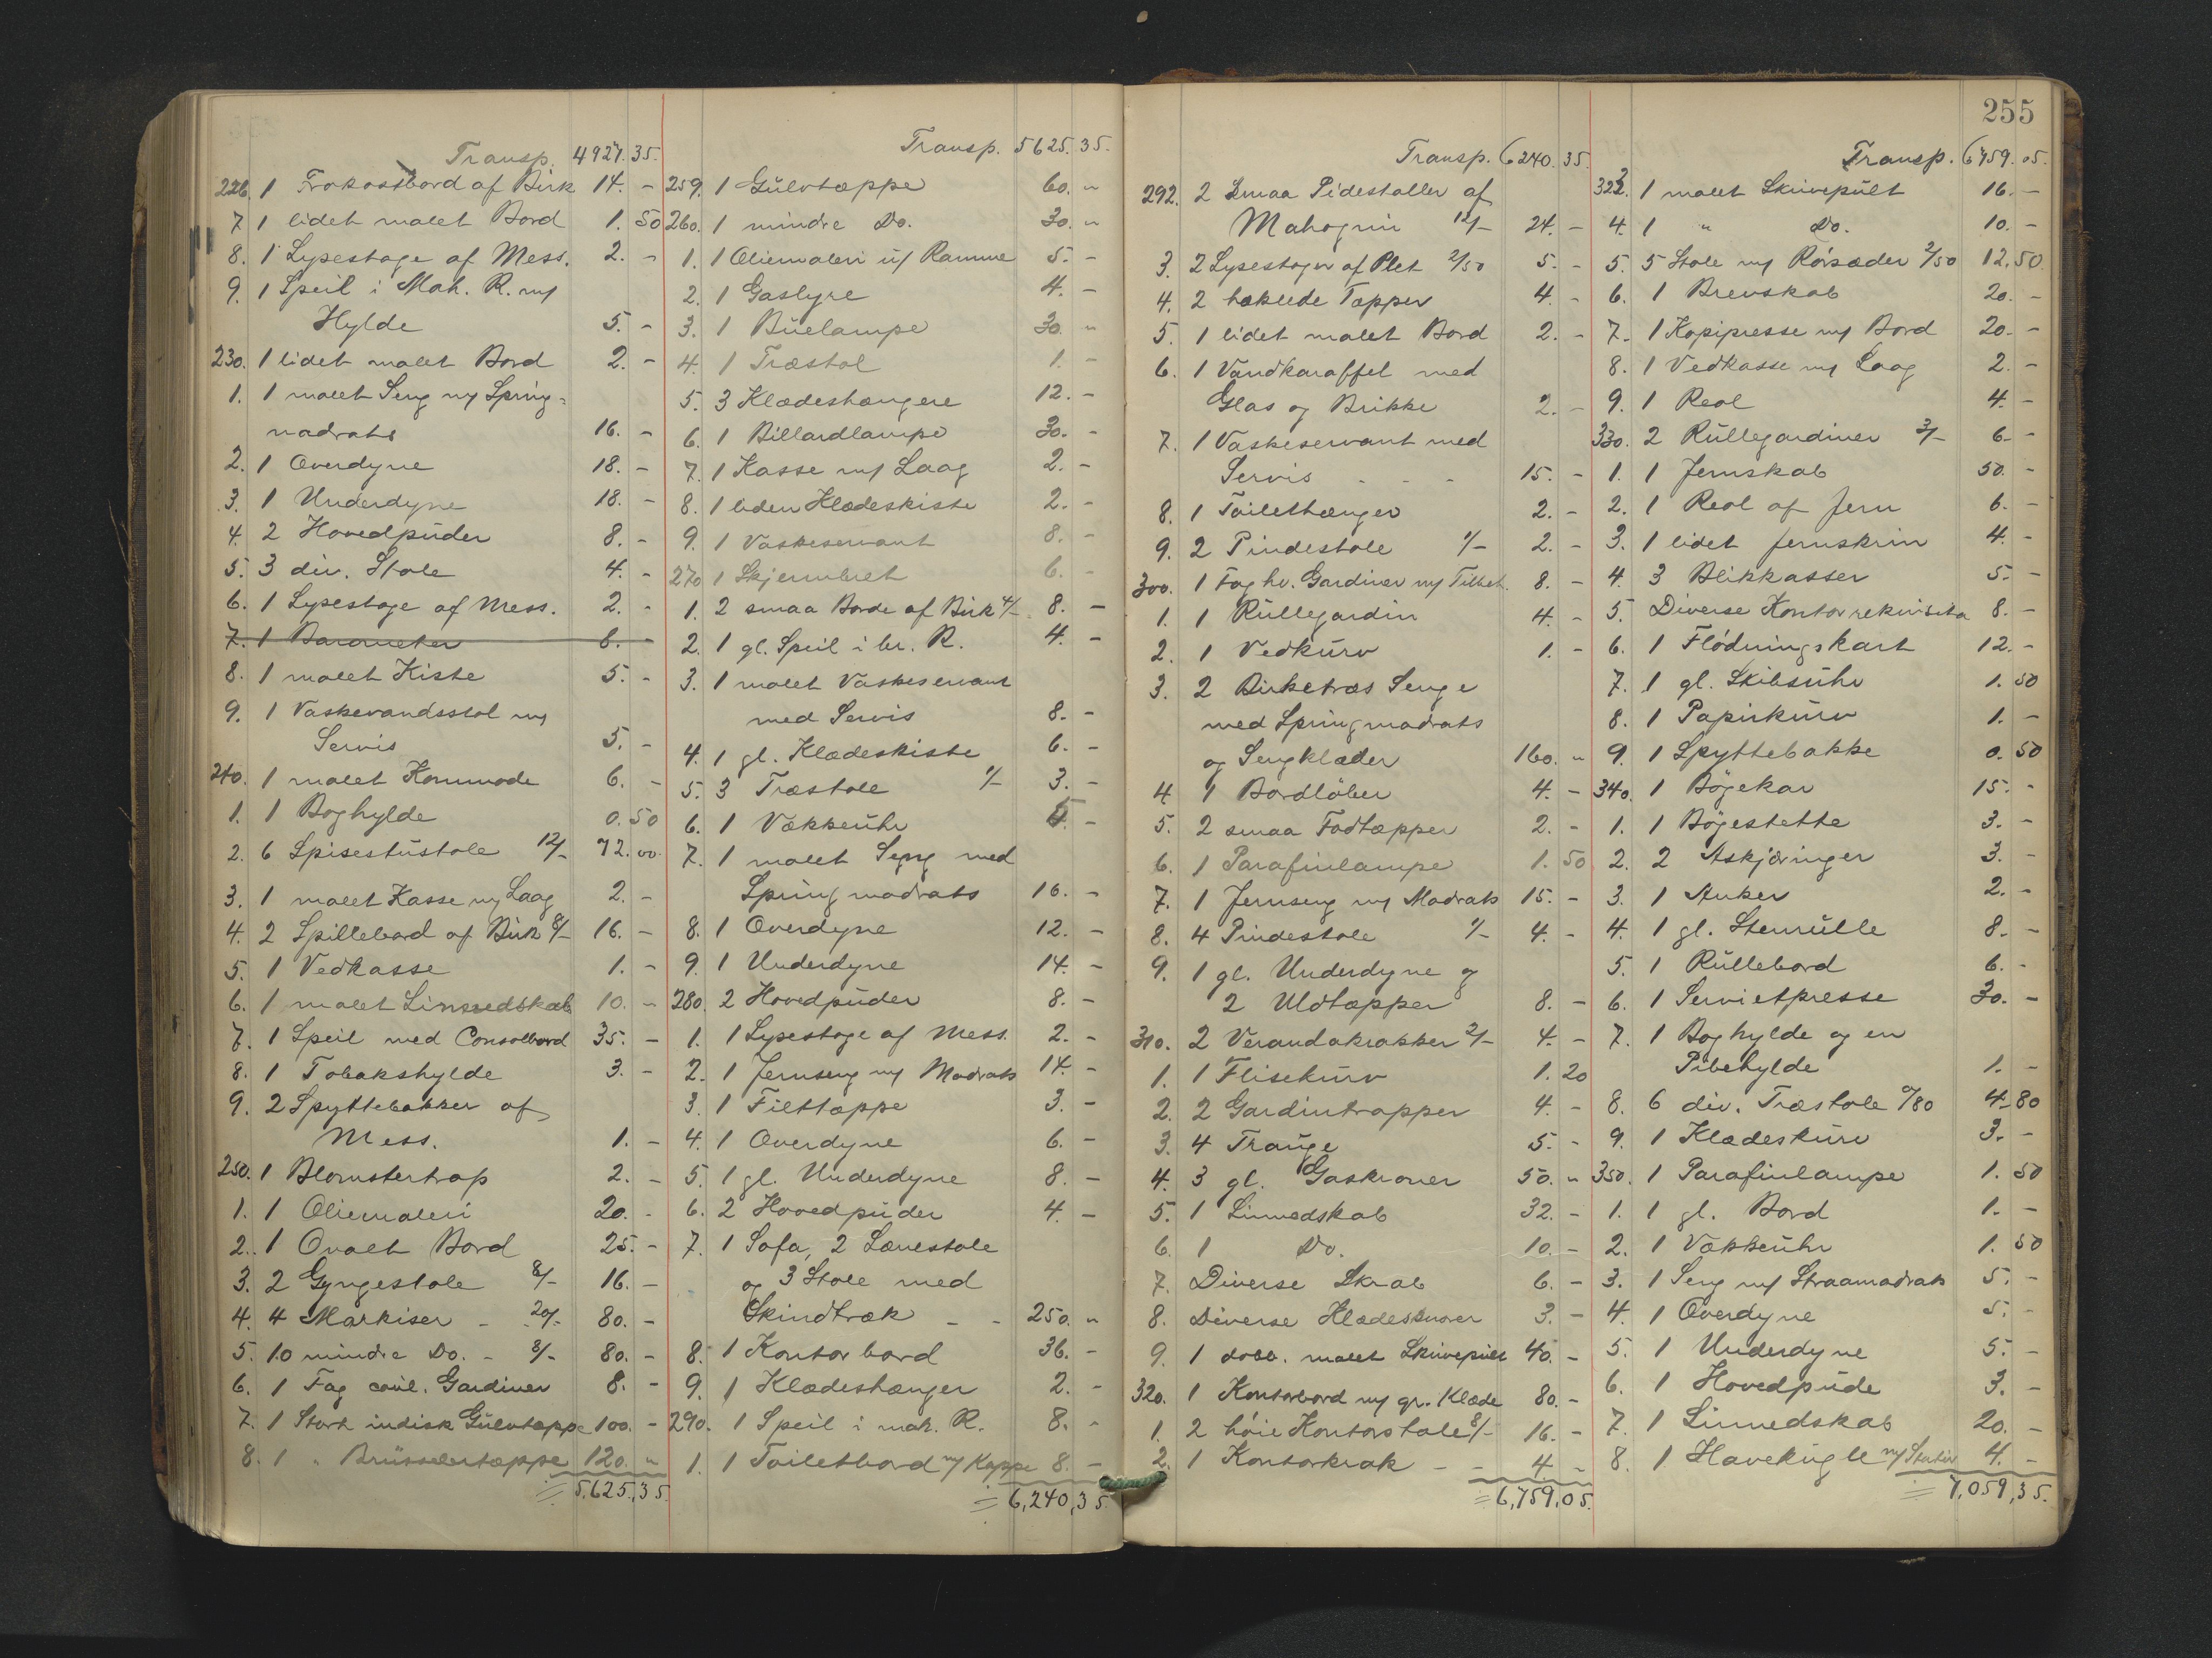 Transp. 4927.35.
226. 1 Frokostbord af Birk 14. -
7. 1 lidet malet Bord 1.50
8. 1 Lysestage af Mess. 2. -
9. 1 Speil i Mah. R. m/
Hylde 5. -
230. 1 lidet malet Bord 2. -
1. 1 malet Seng m/ Spring-
madrats 16. -
2. 1 Overdyne 18. -
3. 1 Underdyne 18. -
4. 2 Hovedpuder 8. -
5. 3 div. Stole 4. -
6. 1 Lysestage af Mess. 2. -
7. 1 Barometer 6. -
8. 1 malet Kiste 5. -
9. 1 Vaskevandsstol m/
Servis 5. -
240. 1 malet Kommode 6. -
1. 1 Boghylde 0.50
2. 6 Spisestustole 12/- 72.00.
3. 1 malet Kasse m/ Laag 2. -
4. 2 Spillebord af Birk 8/- 16. -
5. 1 Vedkasse 1. -
6. 1 malet Linnedskab 10. "
7. 1 Speil med Consolbord 35. -
8. 1 Tobakshylde 3. -
9. 2 Spyttebakker af
Mess. 1. -
250. 1 Blomstertrap 2. -
1. 1 Oliemaleri 20. -
2. 1 Ovalt Bord 25. -
3. 2 Gyngestole 8/- 16. -
4. 4 Markiser - 20/- 80. -
5. 10 mindre Do. - 8/- 80. -
6. 1 Fag coul. Gardiner 8. -
7. 1 Stort indisk Gulvtæppe 100. -
8. 1 " Brüsselertæppe 120. "
= 5,625,35.
Transp. 5625.35.
259. 1 Gulvtæppe 60. "
260. 1 mindre Do. 30. "
1. 1 Oliemaleri u/ Ramme 5. -
2. 1 Gaslyre 4. -
3. 1 Buelampe 30. "
4. 1 Træstol 1. -
5. 3 Klædeshængere 12. -
6. 1 Billardlampe 30. -
7. 1 Kasse m/ Laag 2. -
8. 1 liden Klædeskiste 2. -
9. 1 Vaskeservant 8. -
270 1 Skjermbret 6. -
1. 2 smaa Borde af Birk 4/- 8. -
2. 1 gl. Speil i br. R. 4. -
3. 1 malet Vaskeservant
med Servis 8. -
4. 1 gl. Klædeskiste 6. -
5. 3 Træstole 1/- 3. -
6. 1 Vækkeuhr 5. -
7. 1 malet Seng med
Springmadrats 16. -
8. 1 Overdyne 12. -
9. 1 Underdyne 14. -
280. 2 Hovedpuder 8. -
1. 1 Lysestage af Mess. 2. -
2. 1 Jernseng m/ Madrats 14. -
3. 1 Filttæppe 3. -
4. 1 Overdyne 6. -
5. 1 gl. Underdyne 8. -
6. 2 Hovedpuder 4. -
7. 1 Sofa, 2 Lænestole
og 3 Stole med
Skindtræk - - 250. "
8. 1 Kontorbord 36. -
9. 1 Klædeshænger 2. -
290. 1 Speil i mah. R. 8. -
1. 1 Toiletbord m/ Kappe 8. -
= 6,240,35.
Transp. 6240.35
292. 2 Smaa Pidestaller af
Mahogni 12/- 24. -
3. 2 Lysestager af Plet 2/50 5. -
4. 2 hæklede Tæpper 4. -
5. 1 lidet malet Bord 2. -
6. 1 Vandkaraffel med
Glas og Brikke 2. -
7. 1 Vaskeservant med
Servis - - - 15. -
8. 1 Toilethænger 2. -
9. 2 Pindestole 1/- 2. -
300. 1 Fag hv. Gardiner m/ Tilbeh. 8. -
1. 1 Rullegardin 4. -
2. 1 Vedkurv 1. -
3. 2 Birketræs Senge
med Springmadrats
og Sengklæder 160. "
4 1 Bordløber 4. -
5. 2 smaa Fodtæpper 2. -
6. 1 Parafinlampe 1.50
7. 1 Jernseng m/ Madrats 15. -
8. 4 Pindestole 1/- 4. -
9. 1 gl. Underdyne og
2 Uldtæpper 8. -
310. 2 Verandakrakker 2/- 4. -
1. 1 Flisekurv 1.20
2. 2 Gardintrapper 4. -
3. 4 Trauge 5. -
4. 3 gl. Gaskroner 50. "
5. 1 Linnedskab 32. -
6. 1 Do. 10. -
7. Diverse Skrab 6. -
8. Diverse Klædessnorer 3. -
9. 1 dobb. malet Skrivepult 40. -
320. 1 Kontorbord m/ gr. Klæde 80. -
1. 2 høie Kontorstole 8/- 16. -
2. 1 Kontorkrak - - 4. -
= 6,759,05.
255
Transp. 6759.05.
323. 1 malet Skrivepult 16. -
4. 1 " Do. 10. -
5. 5 Stole m/ Rørsæder 2/50 12,50
6. 1 Brevskab 20. -
7. 1 Kopipresse m/ Bord 20. -
8. 1 Vedkasse m/ Laag 2. -
9. 1 Reol 4. -
330. 2 Rullegardiner 3/- 6. -
1. 1 Jernskab 50. -
2. 1 Reol af Jern 6. -
3. 1 lidet Jernskrin 4. -
4. 3 Blikkasser 5. -
5. Diverse Kontorrekvisita 8. -
6. 1 Flødningskart 12. -
7. 1 gl. Skibsuhr 1.50
8. 1 Papirkurv 1. -
9. 1 Spyttebakke 0.50
340. 1 Bøgekar 15. -
1. 1 Bøgestette 3. -
2. 2 Askjæringer 3. -
3. 1 Anker 2. -
4. 1 gl. Stenrulle 8. -
5. 1 Rullebord 6. -
6. 1 Servietpresse 30. -
7. 1 Boghylde og en
Pibehylde 1. -
8. 6 div. Træstole 0/80 4.80
9. 1 Klædeskurv 3. -
350. 1 Parafinlampe 1.50
1. 1 gl. Bord 1. -
2. 1 Vækkeuhr 1.50
3. 1 Seng m/ Straamadrats 5. -
4. 1 Overdyne 5. -
5. 1 Underdyne 5. -
6. 1 Hovedpude 3. -
7. 1 Linnedskab 20. -
8. 1 Havekugle m/ Stativ 4. -
= 7,059,35.